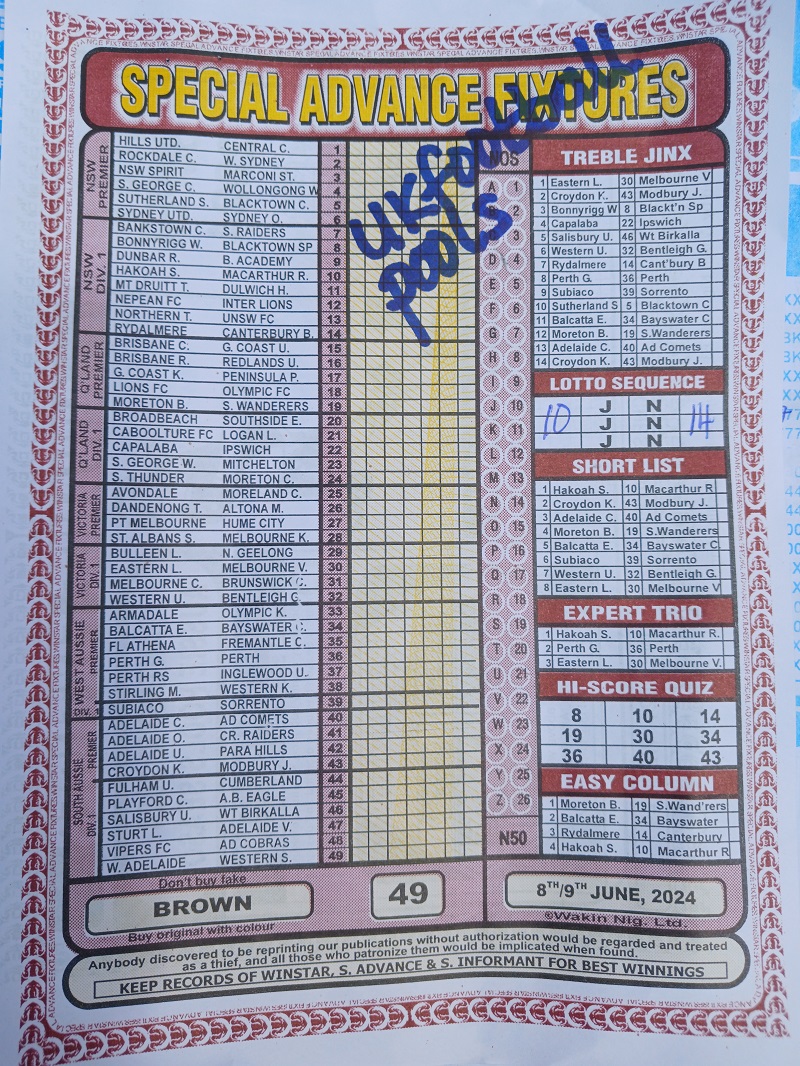 SPECIAL ADVANCE FIXTURES
UK football
pools
NSW PREMIER
HILLS UTD. CENTRAL C. 1
ROCKDALE C. W. SYDNEY 2
NSW SPIRIT MARCONI ST. 3
S. GEORGE C. WOLLONGONG W 4
SUTHERLAND S. BLACKTOWN C. 5
SYDNEY UTD. SYDNEY O. 6
NSW DIV. 1
BANKSTOWN C. S. RAIDERS 7
BONNYRIGG W. BLACKTOWN SP 8
DUNBAR R. B. ACADEMY 9
HAKOAH S. MACARTHUR R. 10
MT DRUITT T. DULWICH H. 11
NEPEAN FC INTER LIONS 12
NORTHERN T. UNSW FC 13
RYDALMERE CANTERBURY B. 14
Q'LAND PREMIER
BRISBANE C. G. COAST U. 15
BRISBANE R. REDLANDS U. 16
G. COAST K. PENINSULA P. 17
LIONS FC OLYMPIC FC 18
MORETON B. S. WANDERERS 19
Q'LAND DIV.1
BROADBEACH SOUTHSIDE E. 20
CABOOLTURE FC LOGAN L. 21
CAPALABA IPSWICH 22
S. GEORGE W. MITCHELTON 23
S. THUNDER MORETON C. 24
VICTORIA PREMIER
AVONDALE MORELAND C. 25
DANDENONG T. ALTONA M. 26
PT MELBOURNE HUME CITY 27
ST. ALBANS S. MELBOURNE K. 28
VICTORIA DIV. 1
BULLEEN L. N. GEELONG 29
EASTERN L. MELBOURNE V. 30
MELBOURNE C. BRUNSWICK C. 31
WESTERN U. BENTLEIGH G. 32
WEST AUSSIE PREMIER
ARMADALE OLYMPIC K. 33
BALCATTA E. BAYSWATER C. 34
FL ATHENA FREMANTLE C. 35
PERTH G. PERTH 36
PERTH RS INGLEWOOD U. 37
STIRLING M. WESTERN K. 38
SUBIACO SORRENTO 39
SOUTH AUSSIE PREMIER
ADELAIDE C. AD COMETS 40
ADELAIDE O. CR. RAIDERS 41
ADELAIDE U. PARA HILLS 42
CROYDON K. MODBURY J. 43
DIV. 1
FULHAM U. CUMBERLAND 44
PLAYFORD C. A.B. EAGLE 45
SALISBURY U. WT BIRKALLA 46
STURT L. ADELAIDE V. 47
VIPERS FC AD COBRAS 48
W. ADELAIDE WESTERN S. 49
NOS
A 1
B 2
3
D 4
E 5
F 6
G 7
H 8
I 9
J 10
K 11
L 12
M 13
N 14
O 15
P 16
Q 17
R 18
S 19
T 20
U 21
V 22
W 23
X 24
Y 25
Z 26
N50
TREBLE JINX
1 Eastern L. 30 Melbourne V
2 Croydon K. 43 Modbury J.
3 Bonnyrigg W 8 Blackt'n Sp
4 Capalaba 22 Ipswich
5 Salisbury U. 46 Wt Birkalla
6 Western U. 32 Bentleigh G.
7 Rydalmere 14 Cant'bury B
8 Perth G. 36 Perth
9 Subiaco 39 Sorrento
10 Sutherland S 5 Blacktown C
11 Balcatta E. 34 Bayswater C
12 Moreton B. 19 S.Wanderers
13 Adelaide C. 40 Ad Comets
14 Croydon K. 43 Modbury J.
LOTTO SEQUENCE
J N
10 J N 14
J N
SHORT LIST
1 Hakoah S. 10 Macarthur R
2 Croydon K. 43 Modbury J.
3 Adelaide C. 40 Ad Comets
4 Moreton B. 19 S.Wanderers
5 Balcatta E. 34 Bayswater C
6 Subiaco 39 Sorrento
7 Western U. 32 Bentleigh G.
8 Eastern L. 30 Melbourne V
EXPERT TRIO
1 Hakoah S. 10 Macarthur R.
2 Perth G. 36 Perth
3 Eastern L. 30 Melbourne V.
HI-SCORE QUIZ
8 10 14
19 30 34
36 40 43
EASY COLUMN
1 Moreton B. 19 S.Wand'rers
2 Balcatta E. 34 Bayswater
3 Rydalmere 14 Canterbury
4 Hakoah S. 10 Macarthur R
Don't buy fake
BROWN
Buy original with colour
49
8TH/9TH JUNE, 2024
©Wakin Nig. Ltd.
Anybody discovered to be reprinting our publications without authorization would be regarded and treated
as a thief, and all those who patronize them would be implicated when found.
KEEP RECORDS OF WINSTAR, S. ADVANCE & S. INFORMANT FOR BEST WINNINGS